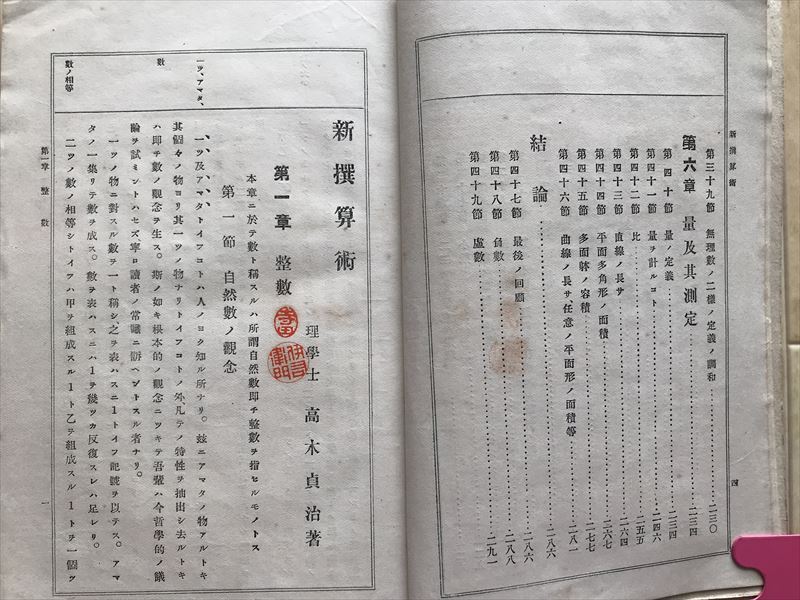 新撰算術
第三十九節 無理數ノ二樣ノ定義ノ調和 二三〇
第六章 量及其測定 二三四
第四十節 量ノ定義 二三四
第四十一節 量ヲ計ルコト 二四六
第四十二節 比 二五五
第四十三節 直線ノ長サ 二六四
第四十四節 平面多角形ノ面積 二六七
第四十五節 多面躰ノ容積 二七七
第四十六節 曲線ノ長サ、任意ノ平面形ノ面積等 二八一
結論 二八六
第四十七節 最後ノ回顧 二八六
第四十八節 負數 二八八
第四十九節 虛數 二九一
四
新撰算術
理學士 高木貞治著
第一章 整數
本章ニ於テ數ト稱スルハ所謂自然數即チ整數ヲ指セルモノトス
第一節 自然數ノ觀念
一ツ、アマタ、
一ツ及アマタトイフコトハ人ノヨク知ル所ナリ。玆ニアマタノ物アルトキ
其個々ノ物ヨリ其一ツノ物ナリトイフコトノ外、凡テノ特性ヲ抽出シ去ルトキ
數
ハ即チ數ノ觀念ヲ生ス。斯ノ如キ根本的ノ觀念ニツキテ吾輩ハ今哲學的ノ議
論ヲ試ミントハセズ寧ロ讀者ノ常識ニ訴ヘントスル者ナリ。
一ツノ物ニ對スル數ヲ一ト稱シ之ヲ表ハスニ1トイフ記號ヲ以テス。アマ
タノ一集リテ數ヲ成ス。數ヲ表ハスニハ1ヲ幾ツカ反復スレハ足レリ。
數ノ相等
二ツノ數ノ相等シトイフハ甲ヲ組成スル1ト乙ヲ組成スル1トヲ一個ヅ
第一章 整數
一